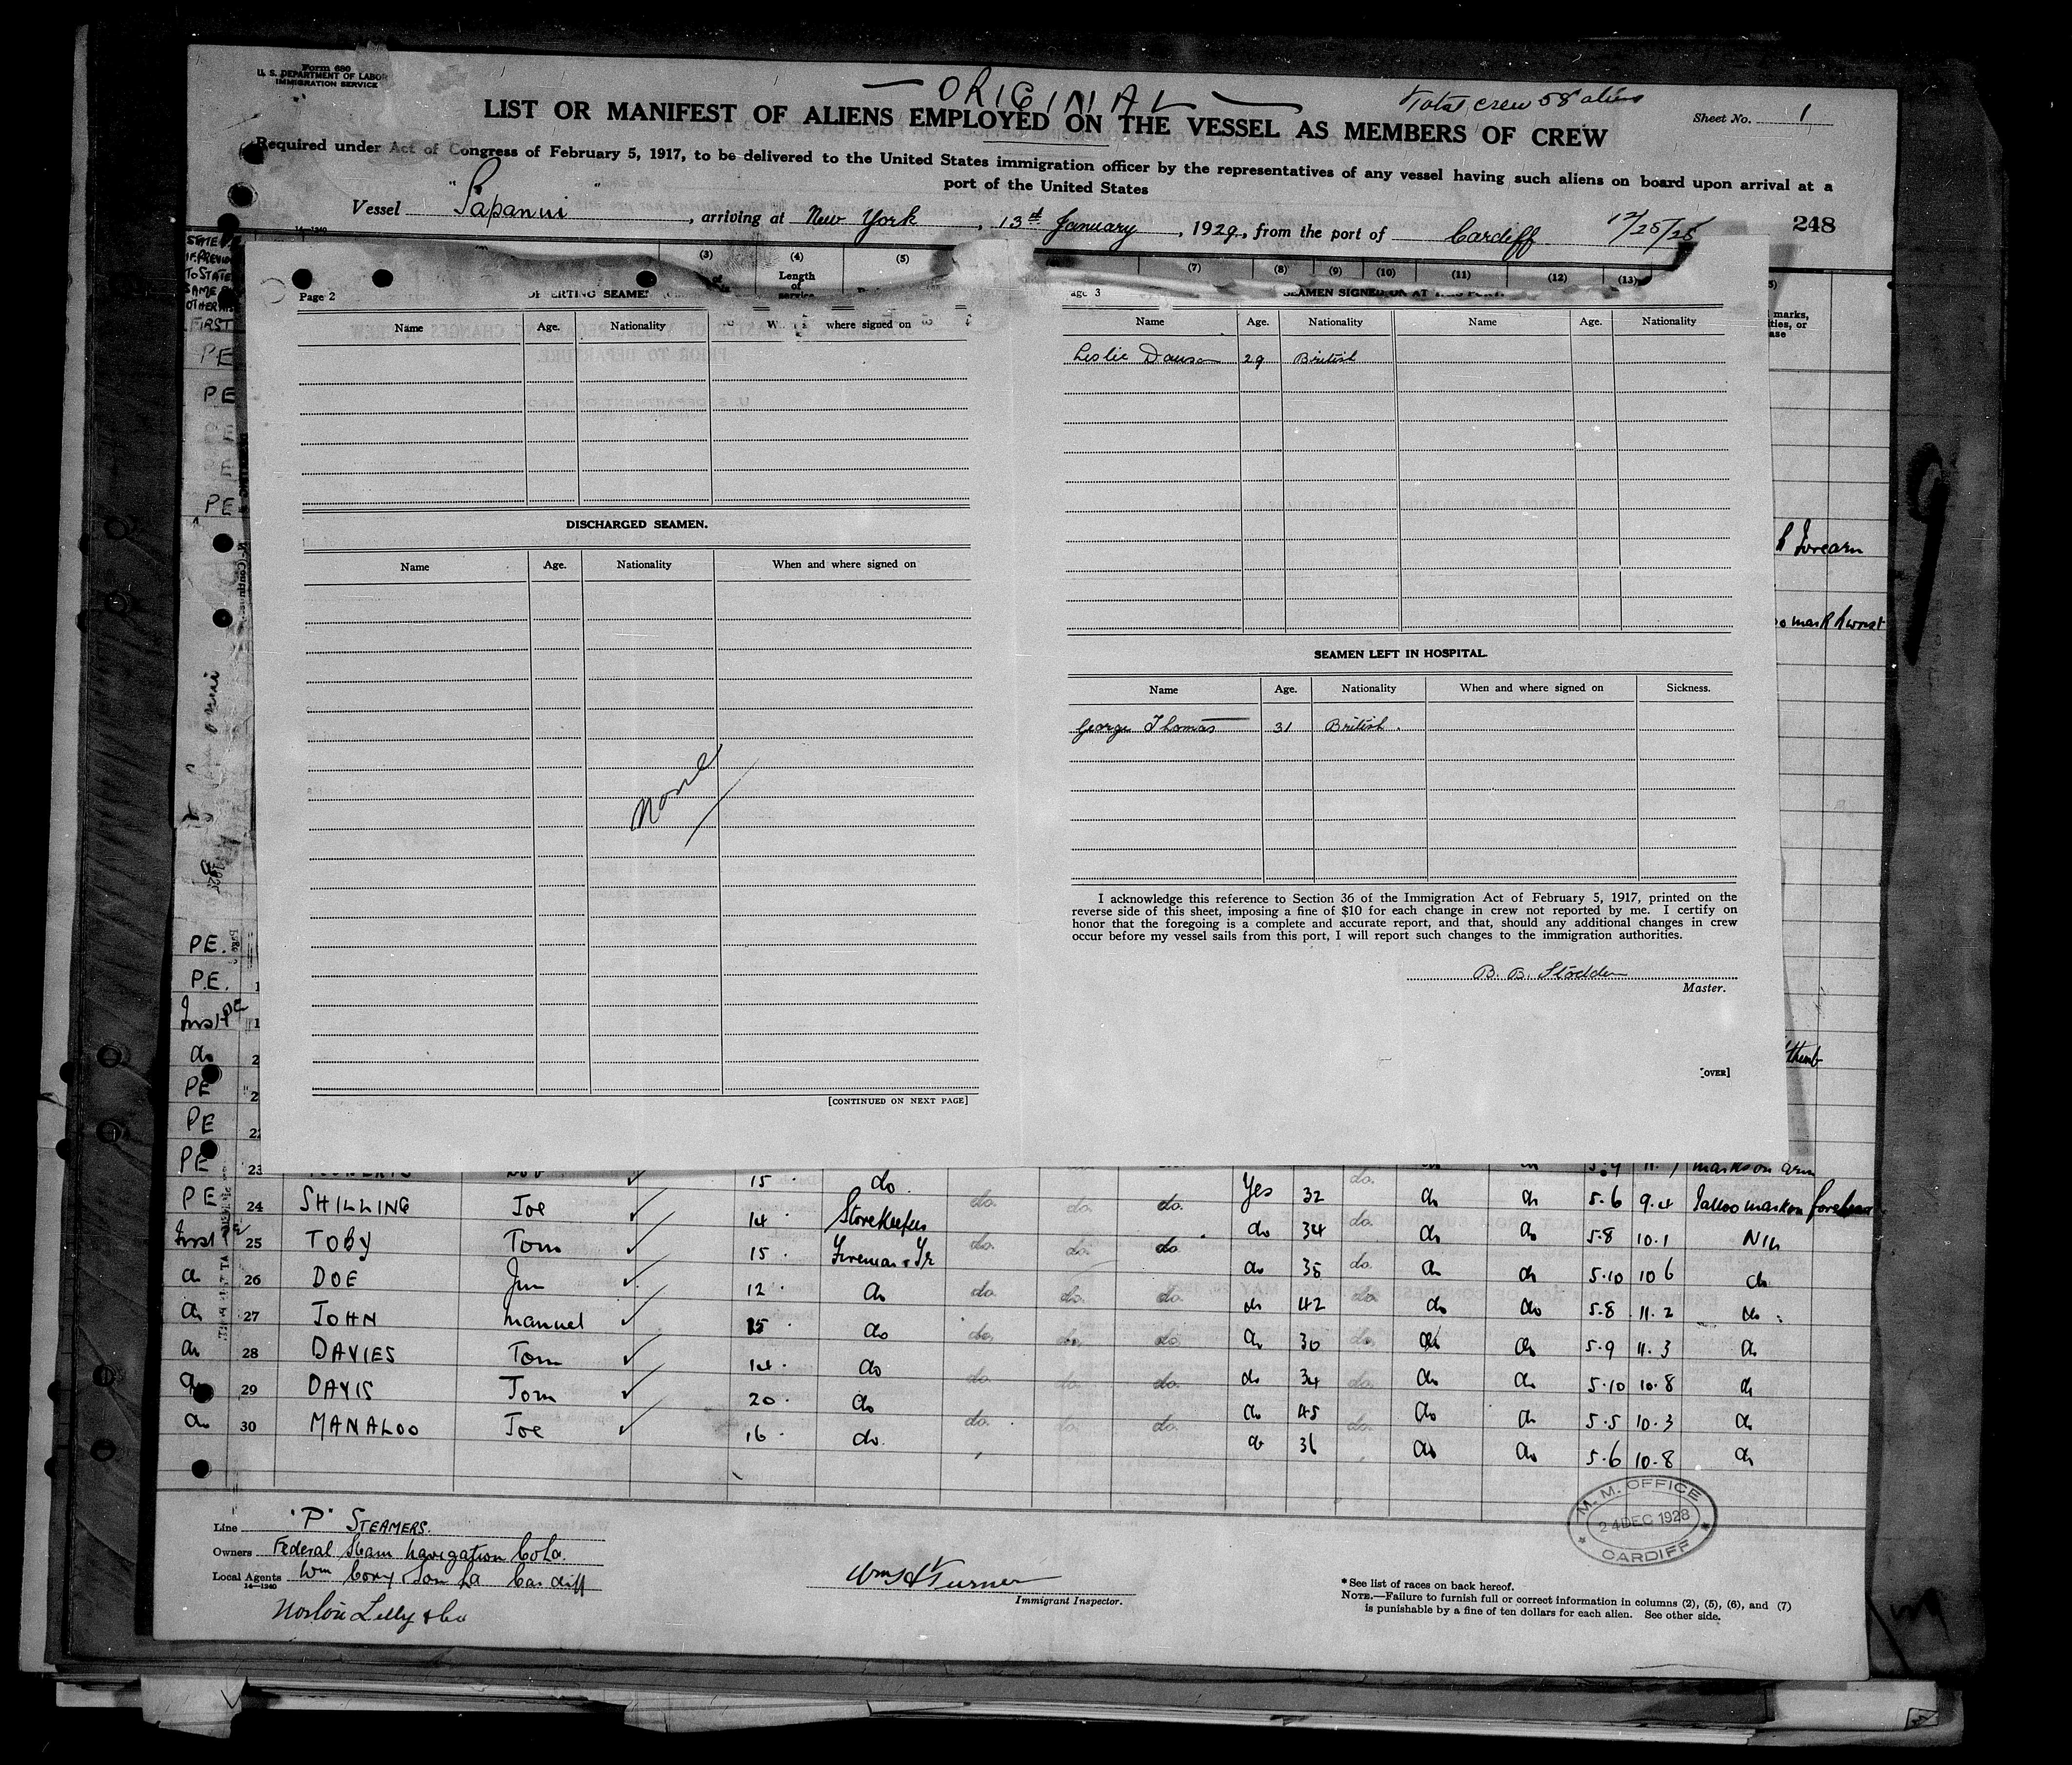 Form 680
U. S. DEPARTMENT OF LABOR
IMMIGRATION SERVICE
ORIGINAL
Total crew 58 aliens
LIST OR MANIFEST OF ALIENS EMPLOYED ON THE VESSEL AS MEMBERS OF CREW
Sheet No. 1
Required under Act of Congress of February 5, 1917, to be delivered to the United States immigration officer by the representatives of any vessel having such aliens on board upon arrival at a
port of the United States
Vessel , arriving at New York , 13th January , 1929, from the port of Cardiff 12/25/28
248
(3) (4) (5) (7) (8) (9) (10) (11) (12) (13)
Length of service
Page 2
Name Age. Nationality where signed on
DISCHARGED SEAMEN.
Name Age. Nationality When and where signed on
None
[CONTINUED ON NEXT PAGE]
SEAMEN SIGNED ON AT THIS PORT.
Name Age. Nationality Name Age. Nationality
Leslie Dawson 29 British
SEAMEN LEFT IN HOSPITAL.
Name Age. Nationality When and where signed on Sickness.
George Thomas 31 British.
I acknowledge this reference to Section 36 of the Immigration Act of February 5, 1917, printed on the
reverse side of this sheet, imposing a fine of $10 for each change in crew not reported by me. I certify on
honor that the foregoing is a complete and accurate report, and that, should any additional changes in crew
occur before my vessel sails from this port, I will report such changes to the immigration authorities.
B. B.
Master.
[OVER]
PE 23 15 do. Yes 32 do. do do marks on arm
PE 24 SHILLING Joe 14 Storekeeper do. do. do. do 34 do. do do 5.6 9.4 Tattoo mark on forehead
25 TOBY Tom 15 Fireman & Tr do. do. do. do 38 do. do do 5.8 10.1 Nil
do 26 DOE Jim 12 do do. do. do. do 42 do do do 5.10 10 6 do
do 27 JOHN Manuel 15 do do. do. do. do 30 do. do do 5.8 11.2 do
do 28 DAVIES Tom 14 do do. do. do. do 34 do. do do 5.9 11.3 do
do 29 DAVIS Tom 20 do do. do. do. do 45 do. do do 5.10 10.8 do
do 30 MANALOO Joe 16 do. do. do. do. do 36 do. do do 5.5 10.3 do
5.6 10.8 do
Line "P" STEAMERS.
Owners Federal Steam Navigation Co Ld.
Local Agents Wm Cory & Son Ld Cardiff
14—1240
Norton Lilly & Co
Wm H Turner
Immigrant Inspector.
M. M. OFFICE
24 DEC 1928
CARDIFF
* See list of races on back hereof.
NOTE.—Failure to furnish full or correct information in columns (2), (5), (6), and (7)
is punishable by a fine of ten dollars for each alien. See other side.